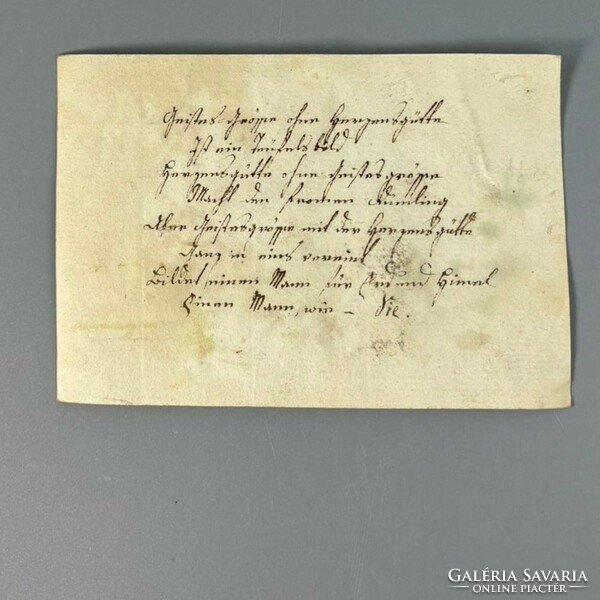 Geistes Größe ohne Herzensgütte
Ist ein Teufelsbild
Herzensgütte ohne Geistesgröße
Macht den fromen
Aber Geistesgröße mit der Herzensgütte
Ganz in eins vereint
Bildet einen Mann für Erd und Himel
Einen Mann, wie – Sie.
GALÉRIA SAVARIA
ONLINE PIACTÉR